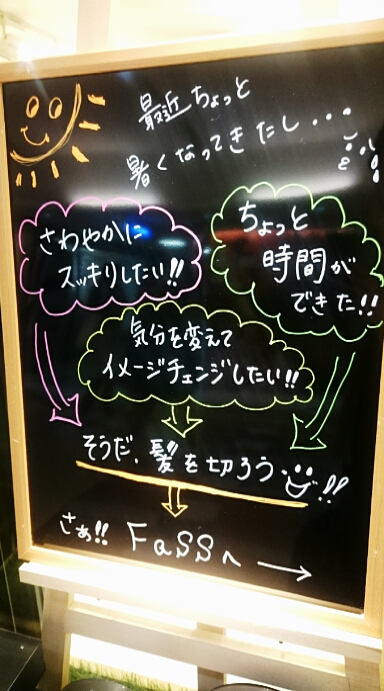 最近ちょっと
暑くなってきたし...
さわやかに
スッキリしたい!!
ちょっと
時間が
できた!!
気分を変えて
イメージチェンジしたい!!
そうだ、髪を切ろう!!
さぁ!! FaSSへ →